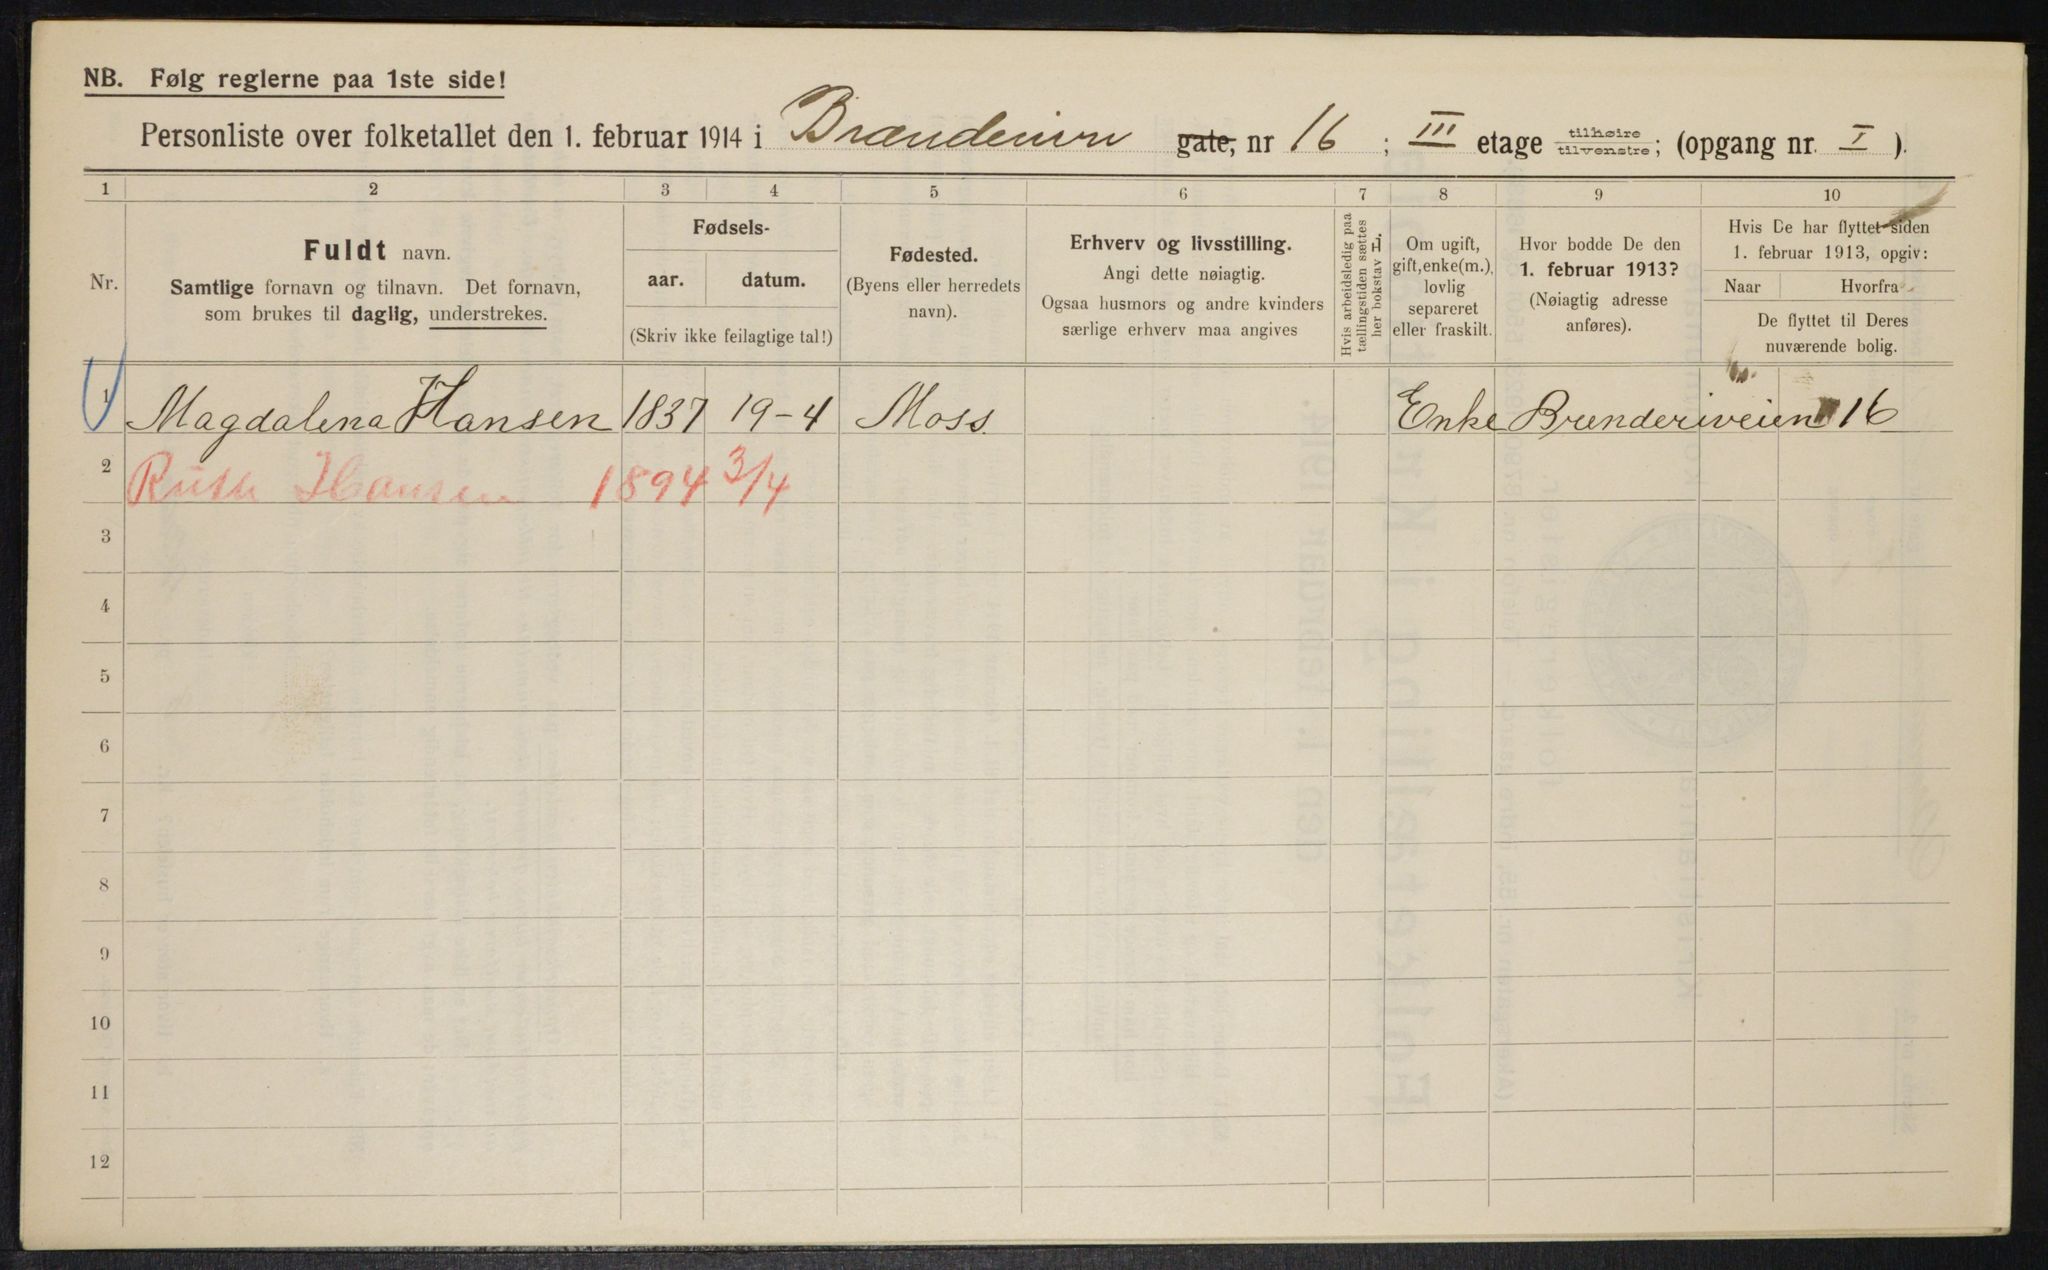 NB. Følg reglerne paa 1ste side!
Personliste over folketallet den 1. februar 1914 i Brænderivn gate, nr 16 ; III etage tilhøire tilvenstre; (opgang nr. I ).
1 2 3 4 5 6 7 8 9 10
Nr.
Fuldt navn.
Samtlige fornavn og tilnavn. Det fornavn,
som brukes til daglig, understrekes.
Fødsels-
aar. datum.
(Skriv ikke feilagtige tal!)
Fødested.
(Byens eller herredets
navn).
Erhverv og livsstilling.
Angi dette nøiagtig.
Ogsaa husmors og andre kvinders
særlige erhverv maa angives
Hvis arbeidsledig paa
tællingstiden sættes
her bokstav L.
Om ugift,
gift, enke(m.),
lovlig
separeret
eller fraskilt.
Hvor bodde De den
1. februar 1913?
(Nøiagtig adresse
anføres).
Hvis De har flyttet siden
1. februar 1913, opgiv:
Naar Hvorfra
De flyttet til Deres
nuværende bolig.
1 Magdalena Hansen 1837 19-4 Moss. Enke Brænderiveien 16
2 Ruth Hansen 1894 3/4
3
4
5
6
7
8
9
10
11
12